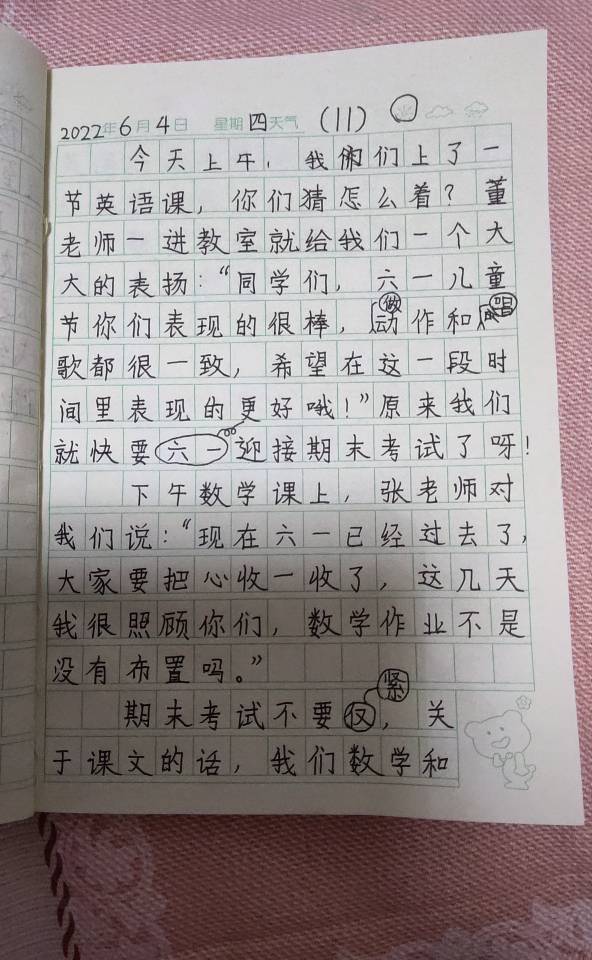 2022年6月4日 星期四天气 (11)
今天上午，我们们上了一
节英语课，你们猜怎么着？董
老师一进教室就给我们一个大
大的表扬：“同学们，六一儿童
节你们表现的很棒，做动作和唱
歌都很一致，希望在这一段时
间里表现的更好哦！”原来我们
就快要六一迎接期末考试了呀！
下午数学课上，张老师对
我们说：“现在六一已经过去了，
大家要把心收一收了，这几天
我很照顾你们，数学作业不是
没有布置吗。”
期末考试不要紧，关
于课文的话，我们数学和